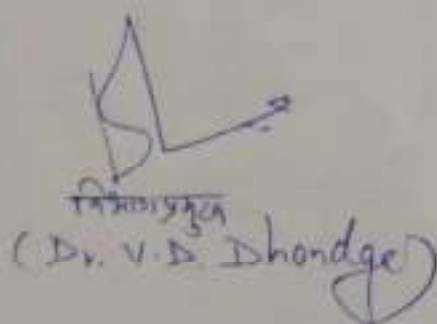 विभाग प्रमुख
(Dr. V.D. Dhondge)